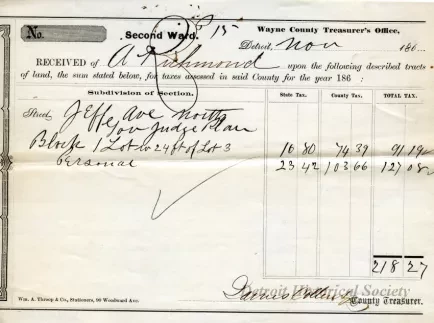 No.
Second Ward.
15
Wayne County Treasurer's Office,
Detroit, Nov 186
RECEIVED OF A Richmond upon the following described tracts
of land, the sum stated below, for taxes assessed in said County for the year 186 :
Subdivision of Section. STATE TAX. COUNTY TAX. TOTAL TAX.
Street Jeffe Ave North
Gov Judge Plan
Block 1 Lot w 24 ft of Lot 3 16 80 74 39 91 19
Personal 23 42 103 66 127 08
218 27
Detroit Historical Society
James County Treasurer.
Wm. A. Throop & Co., Stationers, 90 Woodward Ave.